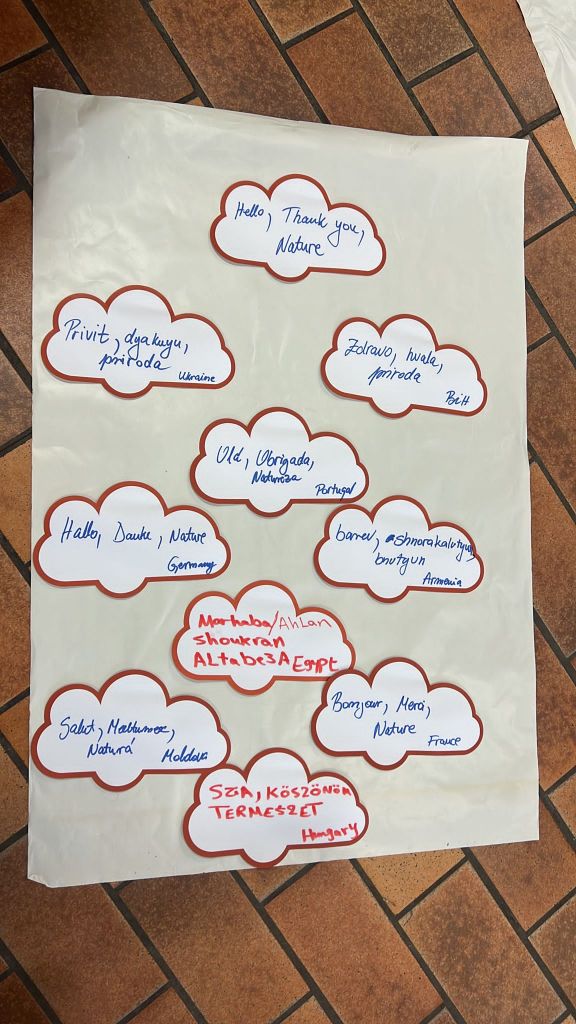 Hello, Thank you,
Nature
Privit, dyakuyu,
priroda
Ukraine
Zdravo, hvala,
priroda
BiH
Olá, Obrigada,
Natureza
Portugal
Hallo, Danke, Nature
Germany
barrev, shnorakalutyun,
bnutyun
Armenia
Marhaba/AhLan
Shoukran
ALtabe3A Egypt
Bonjour, Merci,
Nature
France
Salut, Multumesc,
Natură
Moldova
SZIA, KÖSZÖNÖM
TERMESZET
Hungary